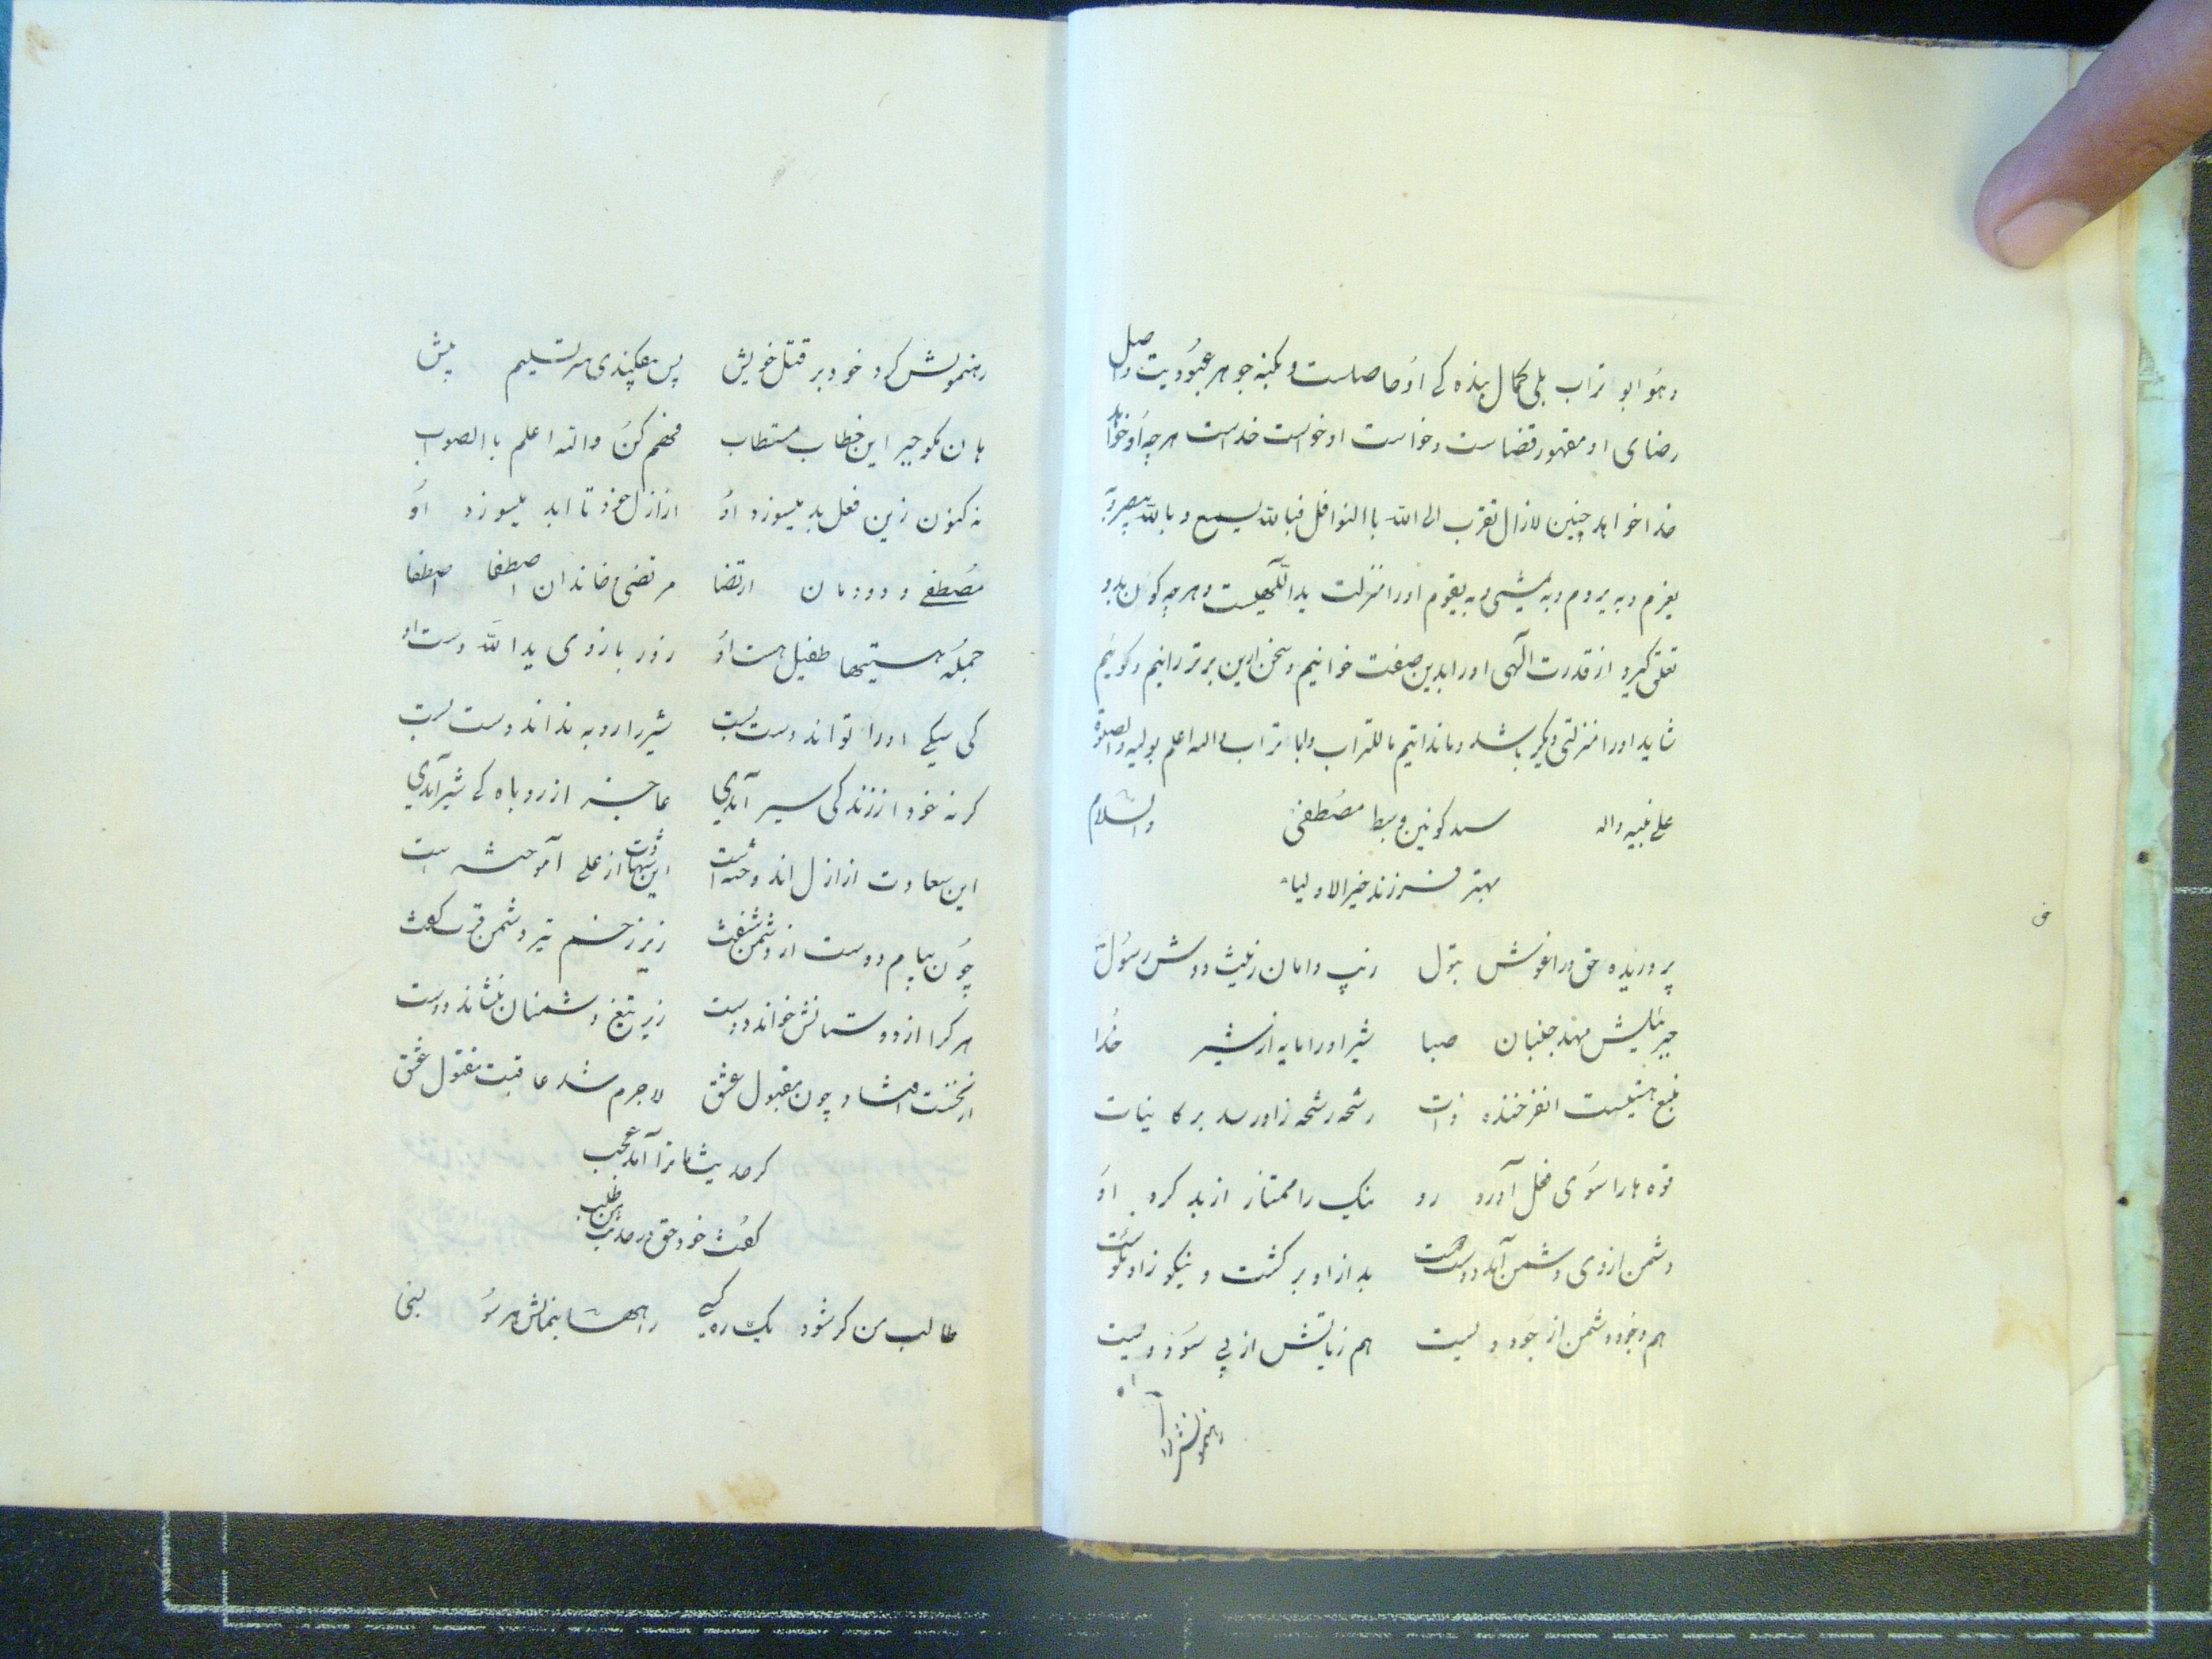 وهو ابو تراب بلی کمال بنده کی او حاصلست و بکنه جوهر عبودیت واصل
رضای او مقهور قضاست و خواست او خواست خداست هر چه او خواهد
خدا خواهد چنین لازال تقرب الی الله باالنوافل فبالله یسمع و بالله یبصر و به
یعزم و به یروم و به یمشی و به یقوم اورا منزلت یدالّلهیست و هر چه کون بدو
تعلق گیرد از قدرت آلهی اورا بدین صفت خوانیم و سخن ازین برتر رانیم و کوئیم
شاید اورا منزلتی دیکر باشد و ما ندانیم ما للتراب و ابا تراب والله اعلم بولیه والصلوة
علی نبیه واله والسلام
سید کونین و سبط مصطفی
بهتر فرزند خیر الاولیاء
پروریده حق در اغوش بتول زیب دامان زینت دوش رسول
جبرئیلش مهد جنبان صبا شیر اورا مایه از شیر خدا
منبع هستیست انفرخنده ذات رشحه رشحه زاو رسد بر کاینات
قوه ها را سوی فعل آورد رو نیک را ممتاز از بد کرد او
دشمن ازوی دشمن آمد دوست دوست بد از او بر کشت و نیکو زاو نکوست
هم وجود دشمن از جود ویست هم زیانش از پی سود ویست
رهنمونش کرد
رهنمونش کرد خود بر قتل خویش پس بفکندی سر تسلیم پیش
هان مکو جبر این خطاب مستطاب فهم کن والله اعلم باالصواب
نه کنون زین فعل بد میسوزد او از ازل خود تا ابد میسوزد او
مصطفی دودمان ارتضا مرتضی خاندان اصطفا
جمله هستیها طفیل هست او زور بازوی یدالله دست او
کی سکی اورا تواند دست بست شیر را روبه نداند دست بست
کر نه خود از زندکی سیر آمدی عاجز از روباه کی شیر آمدی
این سعادت از ازل اندوخته است این شهادت از علی آموخته است
چون پیام دوست از دشمن شنفت زیر زخم تیر دشمن فزت کفت
هر کرا از دوستانش خواند دوست زیر تیغ دشمنان بنشاند دوست
از نخست افتاد چون مقبول عشق لاجرم شد عاقبت مقتول عشق
کر حدیث ما ترا آمد عجب
کفت خود حق در حدیث من طلب
طالب من کر شود یک ره کسی راهها بنمایمش هر سو بسی